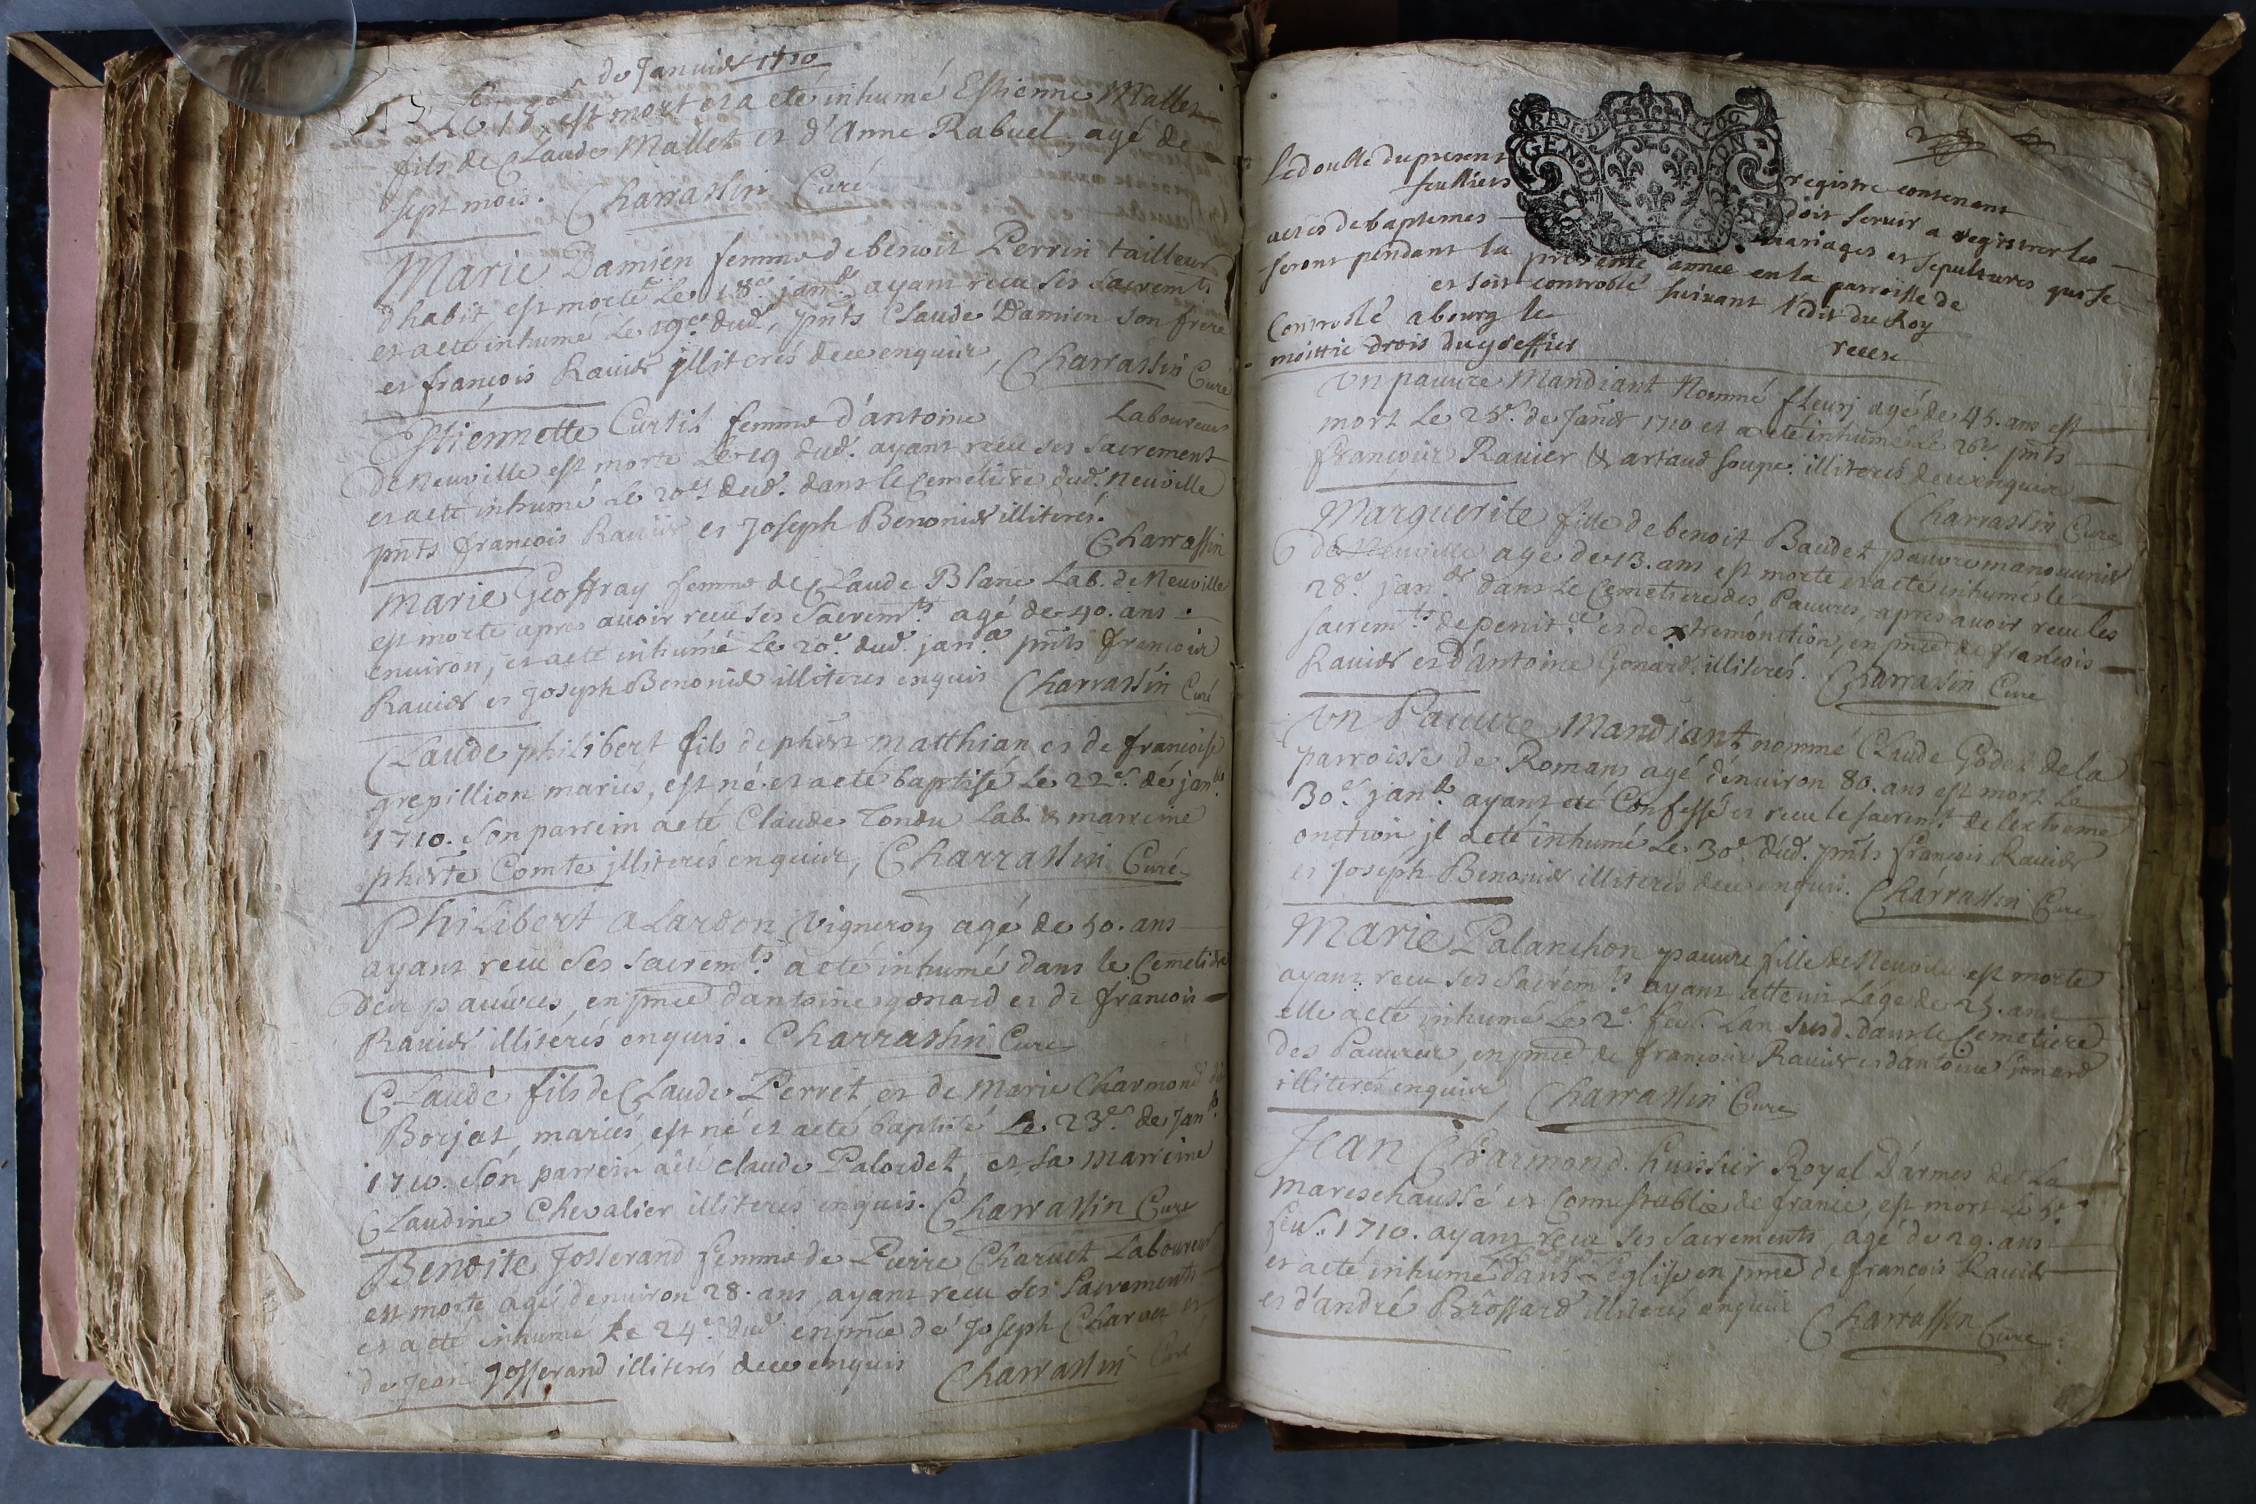 de Janvier 1710
Le 18e est mort et a eté inhumé Estienne Mallet
fils de Claude Mallet et d'Anne Rabuel, agé de
sept mois. Charrassin Curé
Marie Damien femme de benoit Perrin tailleur
d'habit est morte Le 18e janr. ayant receu ses sacremts
et a eté inhumé Le 19e dud. pnts Claude Damien son frere
et françois Ravier illiterés de ce enquis, Charrassin Curé
Estiennette Curtil femme d'antoine Laboureur
de Neuville est morte Le 19 dud. ayant receu ses sacrement
et a eté inhumé Le 20e dud. dans le Cemetiere dud. Neuville
pnts françois Ravier et Joseph Benonier illiterés.
Charrassin
Marie Geoffray femme de Claude Blanc Lab. de Neuville
est morte apres avoir receu ses Sacremts agé de 40. ans
environ, et a eté inhumé Le 20e dud. janr. pnts françois
Ravier et Joseph Benonier illiteres enquis Charrassin Curé
Claude philibert fils de phbert Matthian et de françoise
grepillion mariés, est né et a eté baptisé Le 22e de janr.
1710. Son parrein a eté Claude Tondu Lab. & marreine
phberte Comte illiterés enquis, Charrassin Curé
Philibert alardon Vigneron agé de 50. ans
ayant receu ses sacremts a eté inhumé dans le Cemetiere
des pauvres, en pnce d'antoine gonard et de françois
Ravier illiterés enquis. Charrassin Curé
Claude fils de Claude Perret et de Marie Charmond dit
Borjat mariés est né et a eté baptisé Le 23e de Janr.
1710. Son parrein a eté claude Palordet, et sa Marreine
Claudine Chevalier illiterés enquis. Charrassin Curé
Benoite Josserand femme de Pierre Charvet Laboureur
est morte agé d'environ 28. ans, ayant receu ses Sacrements
et a eté inhumé Le 24e dud. en pnce de Joseph Charvet et
de Jean Josserand illiterés de ce enquis Charrassin Curé
Le double du present registre contenant
feulliets doit servir a registrer les
actes de baptemes mariages et sepultures qui se
feront pendant la presente année en la parroisse de
et soit controblé suivant l'Edit du Roy
Controblé a bourg le
moittie drois du greffier receu
Un pauvre Mandiant Nommé fleury agé de 45. ans est
mort Le 25e de Janr 1710 et a eté inhumé Le 26e pnts
françois Ravier & artaud soupe illiterés de ce enquis
Charrassin Curé
Marguerite fille de benoit Baudet pauvre manouvrier
de Neuville agé de 13. ans est morte et a eté inhumé le
28e janr. dans Le Cemetiere des Pauvres, apres avoir receu les
sacremts de penitce et de extremonction, en pnce de françois
Ravier et d'antoine Gonard illiterés. Charrassin Curé
Un Pauvre Mandiant nommé Claude Godet de la
parroisse de Romans agé d'environ 80. ans est mort Le
30e janr. ayant eté Confessé et receu le sacremt. de l'extreme
onction, il a eté inhumé Le 30e dud. pnts françois Ravier
et Joseph Benonier illiterés de ce enquis. Charrassin Curé
Marie Palanchon pauvre fille de Neuville est morte
ayant receu ses Sacremts ayant attenir L'age de 25. ans
elle a eté inhumé Le 2e fev. L'an susd. dans le Cemetiere
des Pauvres, en pnce de françois Ravier et d'antoine Gonard
illiterés enquis, Charrassin Curé
Jean Charmond huissier Royal D'armes de La
mareschaussé et Connestablie de france, est mort Le 5e
fev. 1710. ayant receu ses sacrements agé de 29. ans
et a eté inhumé dans L'eglise en pnce de francois Ravier
et d'andré Brossard illiterés enquis Charrassin Curé